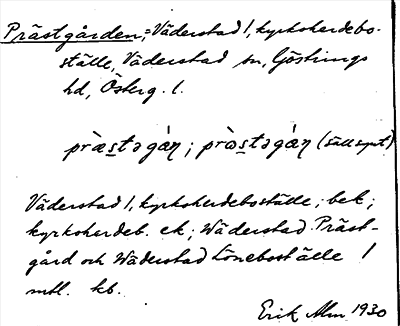 Prästgården, = Väderstad 1, kyrkoherdebo-
ställe, Väderstad sn, Göstrings
hd, Österg. l.
præ̀stəgán; prò̀stəgàn (sällsynt)
Väderstad 1, kyrkoherdeboställe; bek;
kyrkoherdeb. ek; Wäderstad Präst-
gård och Wäderstad Löneboställe 1
mtl. kb.
Erik Alm 1930